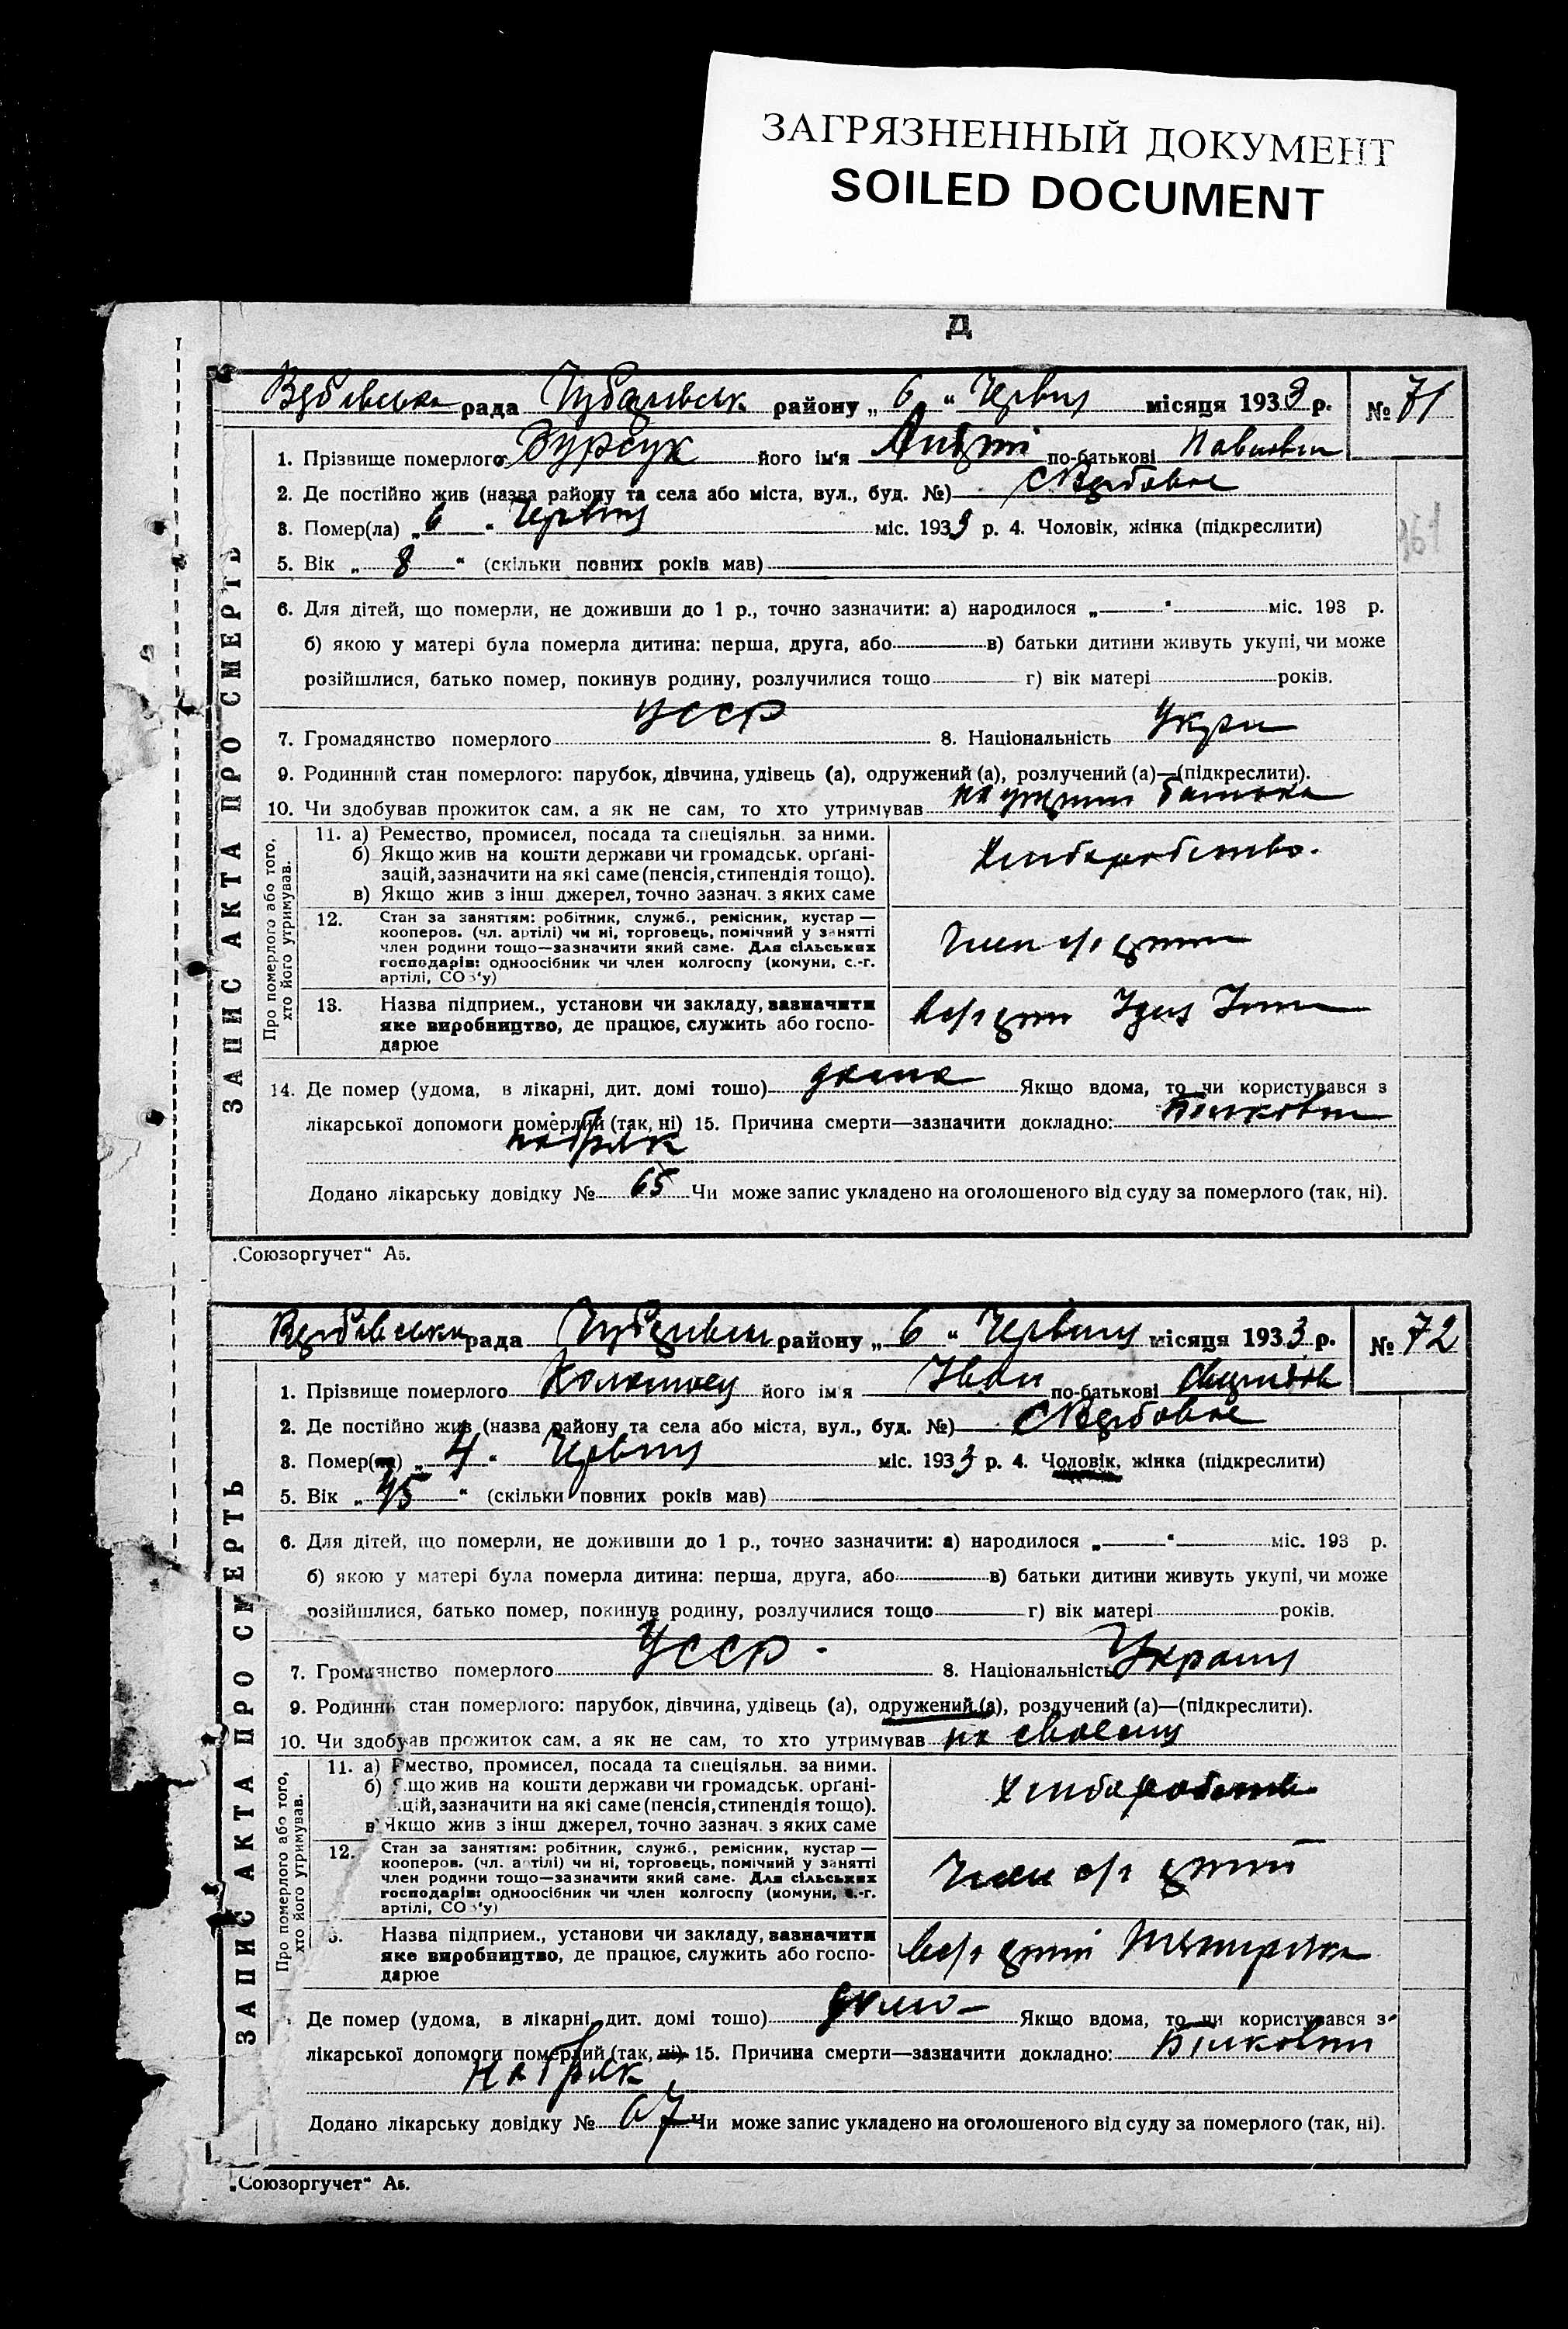 ЗАГРЯЗНЕННЫЙ ДОКУМЕНТ
SOILED DOCUMENT
Д
рада району „ 6 “ місяця 1933 р. № 71
ЗАПИС АКТА ПРО СМЕРТЬ
1. Прізвище померлого його ім'я по-батькові Павлович
2. Де постійно жив (назва району та села або міста, вул., буд. №) с Вербовое
3. Помер(ла) „ 6 “ Червня міс. 1933 р. 4. Чоловік, жінка (підкреслити)
961
5. Вік „ 8 “ (скільки повних років мав)
6. Для дітей, що померли, не доживши до 1 р., точно зазначити: а) народилося „ “ міс. 193 р.
б) якою у матері була померла дитина: перша, друга, або в) батьки дитини живуть укупі, чи може
розійшлися, батько помер, покинув родину, розлучилися тощо г) вік матері років.
7. Громадянство померлого УССР 8. Національність Укра
9. Родинний стан померлого: парубок, дівчина, удівець (а), одружений (а), розлучений (а)—(підкреслити).
10. Чи здобував прожиток сам, а як не сам, то хто утримував батька
Про померлого або того, хто його утримував.
11. а) Ремество, промисел, посада та спеціяльн. за ними.
б) Якщо жив на кошти держави чи громадськ. органі-
зацій, зазначити на які саме (пенсія, стипендія тощо).
в) Якщо жив з інш джерел, точно зазнач. з яких саме
Хлиборобство.
12. Стан за заняттям: робітник, служб., ремісник, кустар —
кооперов. (чл. артілі) чи ні, торговець, помічний у занятті
член родини тощо—зазначити який саме. Для сільських
господарів: одноосібник чи член колгоспу (комуни, с.-г.
артілі, СОЗ'у)
Член с/г артили
13. Назва підприем., установи чи закладу, зазначити
яке виробництво, де працює, служить або госпо-
дарює
14. Де помер (удома, в лікарні, дит. домі тошо) дома Якщо вдома, то чи користувався з
лікарської допомоги померлий (так, ні) 15. Причина смерти—зазначити докладно: Білковый
набряк
Додано лікарську довідку № 65 Чи може запис укладено на оголошеного від суду за померлого (так, ні).
„Союзоргучет“ А5.
рада району „ 6 “ Червня місяця 1933 р. № 72
ЗАПИС АКТА ПРО СМЕРТЬ
1. Прізвище померлого його ім'я Иван по-батькові
2. Де постійно жив (назва району та села або міста, вул., буд. №) с Вербовое
3. Помер(ла) „ 4 “ Червня міс. 1933 р. 4. Чоловік, жінка (підкреслити)
5. Вік „ 45 “ (скільки повних років мав)
6. Для дітей, що померли, не доживши до 1 р., точно зазначити: а) народилося „ “ міс. 193 р.
б) якою у матері була померла дитина: перша, друга, або в) батьки дитини живуть укупі, чи може
розійшлися, батько помер, покинув родину, розлучилися тощо г) вік матері років.
7. Громадянство померлого УССР 8. Національність
9. Родинний стан померлого: парубок, дівчина, удівець (а), одружений (а), розлучений (а)—(підкреслити).
10. Чи здобував прожиток сам, а як не сам, то хто утримував на своему
Про померлого або того, хто його утримував.
11. а) Ремество, промисел, посада та спеціяльн. за ними.
б) Якщо жив на кошти держави чи громадськ. органі-
зацій, зазначити на які саме (пенсія, стипендія тощо).
в) Якщо жив з інш джерел, точно зазнач. з яких саме
Хлиборобство
12. Стан за заняттям: робітник, служб., ремісник, кустар —
кооперов. (чл. артілі) чи ні, торговець, помічний у занятті
член родини тощо—зазначити який саме. Для сільських
господарів: одноосібник чи член колгоспу (комуни, с.-г.
артілі, СОЗ'у)
Член с/г артили
Назва підприем., установи чи закладу, зазначити
яке виробництво, де працює, служить або госпо-
дарює
Де помер (удома, в лікарні, дит. домі тошо) дома Якщо вдома, то чи користувався з
лікарської допомоги померлий (так, ні) 15. Причина смерти—зазначити докладно: Білковый
Набряк
Додано лікарську довідку № 67 Чи може запис укладено на оголошеного від суду за померлого (так, ні).
„Союзоргучет“ А5.